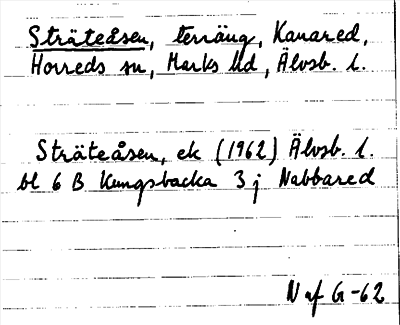 Sträteåsen, terräng, Kanared,
Horreds sn, Marks hd, Älvsb. l.
Sträteåsen, ek (1962) Älvsb. l.
bl 6 B Kungsbacka 3 j Nabbared
N af G -62